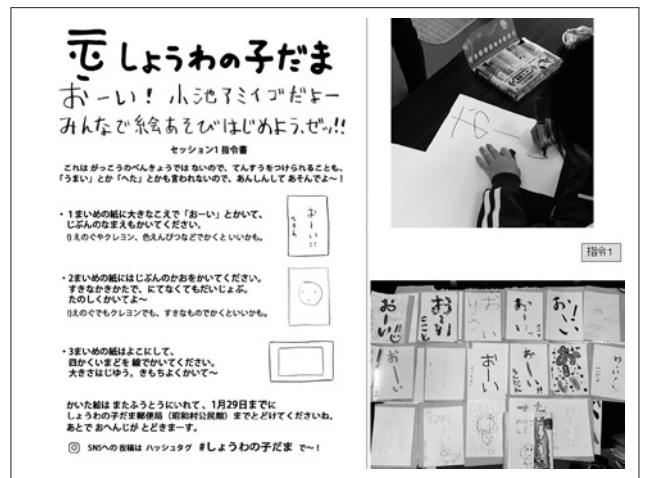 しょうわの子だま
おーい！ 小池アミイゴだよー
みんなで絵あそびはじめよう、ぜッ!!
セッション1 指令書
これは がっこうのべんきょうでは ないので、てんすうをつけられることも、
「うまい」とか「へた」とかも言われないので、あんしんして あそんでよ〜！
・1まいめの紙に大きなこえで「おーい」とかいて、
じぶんのなまえもかいてください。
!)えのぐやクレヨン、色えんぴつなどでかくと いいかも。
おーい!!
なまえ
・2まいめの紙にはじぶんのかおをかいてください。
すきなかきかたで、にてなくてもだいじょぶ。
たのしくかいてよ〜
!)えのぐでもクレヨンでも、すきなものでかくといいかも。
・3まいめの紙はよこにして、
四かくいまどを 線でかいてください。
大きさはじゆう。きもちよくかいて〜
かいた絵は またふうとうにいれて、1月29日までに
しょうわの子だま郵便局（昭和村公民館）までとどけてくださいね。
あとで おへんじが とどきまーす。
SNSへの投稿は ハッシュタグ #しょうわの子だま で〜！
指令1
おーい
おーい
おーい
おーい
お！い
おーい
おーい
おーい